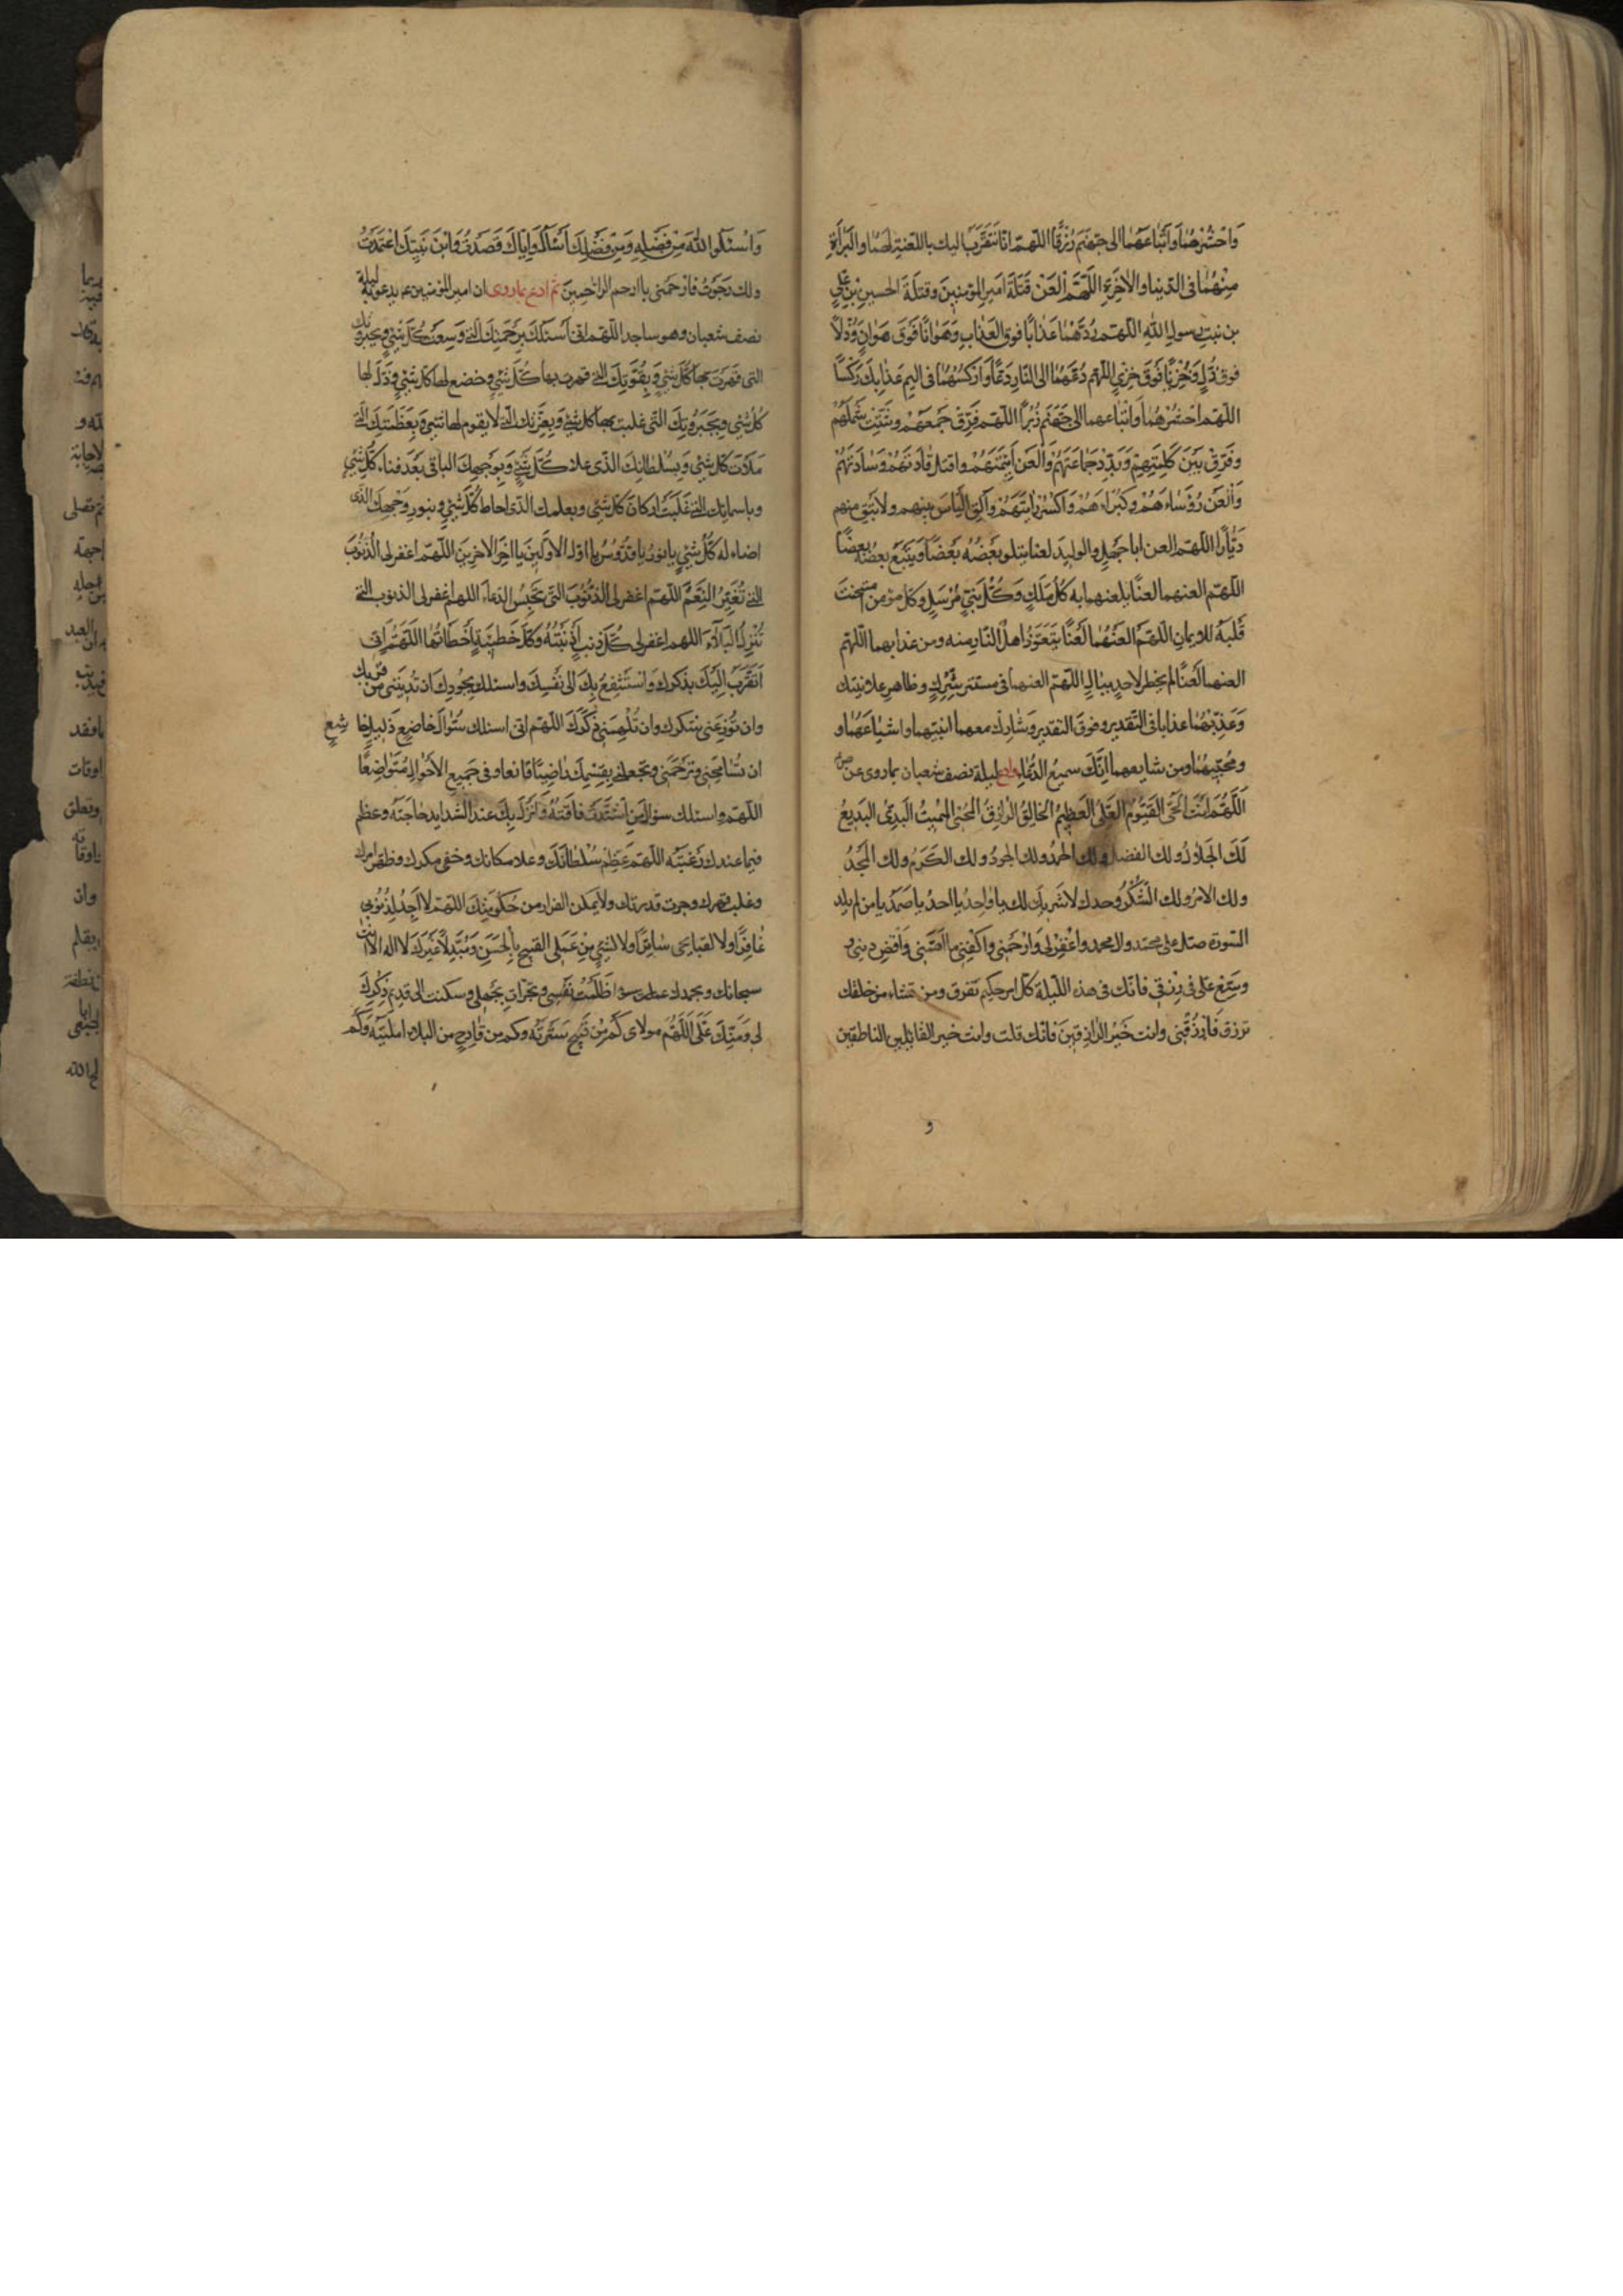 وَاحْشُرْهُمٰا وَاَتْبٰاعَهُمٰا الى جَهَنَّمَ زُرْقًا اللّهمّ انّا نَتَقَرَّبُ اليك باللعنةِ لَهُمٰا والبَرٰاءَةِ
مِنْهُمٰا فى الدّنيا والاٰخرةِ اللّهمّ العَنْ قَتَلَةَ اَميرِ المؤمنينَ وقتلةَ الحسينِ بنِ عَلِيٍّ
بن بنتِ رسولِ اللهِ اللّهمّ زِدْهُمٰا عَذٰابًا فوق العَذٰابِ وَهَوٰانًا فَوْقَ هَوٰانٍ وَذُلًّا
فوق ذُلٍّ وَخِزْيًا فَوْقَ خِزْيٍ اللّهمّ دُعَّهُمٰا الى النّارِ دَعًّا وَارْكُسْهُمٰا فى اليمِ عَذٰابِكَ رَكْسًا
اللّهمّ احشُرْهُمٰا وَاَتْبٰاعهما الى جَهَنّمَ زُمَرًا اللّهمّ فَرِّقْ جَمعَهُمْ وشَتِّتْ شَمْلَهُمْ
وفَرِّقْ بَيْنَ كَلِمَتِهِمْ وَبَدِّدْ جَمٰاعَتَهُمْ وَالْعَنْ اَئِمَّتَهُمْ واقتل قٰادَتَهُمْ وَسٰادَتَهُمْ
وَالْعَنْ رُؤَسٰاءَهُمْ وكُبَرٰاءَهُمْ وَاكْسِرْ رٰايَتَهُمْ وَاَلْقِ البَأسَ بينهم ولا تُبْقِ منهم
دَيّٰارًا اللّهمّ العن اباجَهْلٍ والوليدَ لعنا يتلو بَعْضُهُ بَعْضًا ويَتْبَعُ بعضُهُ بعضًا
اللّهمّ العنهما لعنًا يلعنهما به كُلُّ مَلَكٍ وَكُلُّ نَبِيٍّ مُرْسَلٍ وكلّ مؤمن امْتَحَنْتَ
قَلْبَهُ للايمانِ اللّهمّ العَنْهُمٰا لَعْنًا يَتَعَوَّذُ اهلُ النّار منه ومن عذابهما اللّهمّ
العنهما لَعْنًا لم يخطر لاحدٍ ببالٍ اللّهمّ العنهما فى مستترِ سِرِّكَ وظاهرِ علانيتك
وَعَذِّبْهُمٰا عذابا فى التّقدير وفوقَ التقدير وشٰارِكْ معهما ابنتيهما واشيٰاعَهُمٰا و
ومُحِبّيهُمٰا ومن شايعهما اِنَّكَ سميعُ الدُّعٰاءِ وادع ليلة نصف شعبان بما روى عن ص
اَللّهمَّ اَنْتَ الحَىُّ القَيُّومُ العَلِىُّ العَظِيمُ الخٰالِقُ الرّازِقُ المُحْيِى المُمِيتُ البَدِىءُ البَدِيعُ
لَكَ الجَلٰالُ ولك الفضل ولك الحمدُ ولك الجودُ ولك الكَرَمُ ولك المَجْدُ
ولك الامرُ ولك الشُّكْرُ وحدك لا شريكَ لك يا وٰاحِدُ يا احدُ يا صَمَدُ يا من لم يلد
السّورة صلّ على محمّد وال محمد وٱغْفِرْ لى وَارْحَمْنى واكْفِنى ما اَهَمَّنى وَاقْضِ دينى و
وسّع علىّ فى رزقى فانّك فى هذه اللّيلةِ كلّ امر حكيم تفرق ومن تشاء من خلقك
ترزق فَارْزُقْنى وانت خَيْرُ الرّازِقينَ فانّك قلت وانت خير القائلين الناطقين
و
وَاسْئَلُوا اللهَ مِنْ فَضْلِهِ وَمِنْ فَضْلِكَ اَسْأَلُ وَاِيّٰاكَ قَصَدْتُ وَابْنَ نَبِيِّكَ اعْتَمَدْتُ
ولك رَجَوْتُ فارْحَمْنى يا ارحم الرّاحمينَ ثم ادع بما روى ان امير المؤمنين ع يدعو به ليلة
نصف شعبان وهو ساجد اللّهمّ انى اَسْئَلُكَ بِرَحْمَتِكَ الّتى وَسِعَتْ كُلَّ شَيْءٍ وبجبروتك
التى قَهَرْتَ بها كُلَّ شَيْءٍ وَبِقُوَّتِكَ الّتى قهرت بها كُلَّ شَيْءٍ وخضع لها كلّ شَيْءٍ وذَلَّ لها
كُلُّ شَيْءٍ وبِجَبَرُوتِكَ الّتى غلبت بها كلّ شَيْءٍ وَبِعِزَّتِكَ الّتى لا يقوم لها شىءٌ وَبِعَظَمَتِكَ الّتى
مَلَأَتْ كلَّ شَيْءٍ وَبِسُلْطٰانِكَ الّذى علا كُلَّ شَيْءٍ وَبِوَجْهِكَ الباقى بَعْدَ فناء كُلِّ شَيْءٍ
وباسمائِك الّتى غَلَبَتْ اركٰانَ كلّ شَيْءٍ وبعلمك الّذى احاط بكُلِّ شَيْءٍ وبنورِ وَجْهِكَ الّذى
اضاء له كُلُّ شَيْءٍ يا نورُ يا قُدُّوسُ يا اوّلَ الاوّلينَ يا اخِرَ الاخِرينَ اللّهمّ اغفر لى الذُّنُوبَ
الّتى تُغَيِّرُ النِّعَمَ اللّهمّ اغفر لى الذُّنُوبَ الّتى تَحْبِسُ الدُّعٰاءَ اللهم اغفر لى الذنوب الّتى
تُنْزِلُ البَلٰاءَ اللهم اغفر لى كُلَّ ذنبٍ اَذْنَبْتُهُ وكُلَّ خَطِيئَةٍ اَخْطَأْتُهٰا اللّهُمَّ اِنّى
اَتَقَرَّبُ اِلَيْكَ بذكرك وَاَسْتَشْفِعُ بِكَ الى نَفْسِكَ واسئلك بِجُودِكَ ان تُدْنِيَنى من قربك
وان تُوزِعَنى شكرك وان تُلْهِمَنى ذِكْرَكَ اللّهمّ انى اسئلك سُؤٰالَ خٰاضِعٍ ذَلِيلٍ خا شِعٍ
ان تُسٰامِحَنى وتَرْحَمَنى وتَجْعَلَنى بِقِسْمِكَ رٰاضِيًا قانعا وفى جَمِيعِ الاَحْوٰالِ مُتَوٰاضِعًا
اللّهمّ واسئلك سؤالَ مَنِ اشْتَدَّتْ فٰاقَتُهُ وَاَنْزَلَ بِكَ عند الشّدايد حٰاجَتَهُ وعظم
فيما عندك رَغْبَتُهُ اللّهمّ عَظُمَ سُلْطٰانُكَ وعَلا مكانك وخفى مكرك وظهر امرك
وغلب قهرك وجرت قدرتك ولا يمكن الفرار من حُكُومَتِكَ اللّهمّ لا اَجِدُ لِذُنُوبى
غٰافِرًا ولا لقبايحى سٰاتِرًا ولا لشَيْءٍ مِنْ عَمَلِى القبيحِ بالحَسَنِ مُبَدِّلًا غَيْرَكَ لا اله الا انت
سبحانك وبحمدك ظَلَمْتُ نَفْسِى وتَجَرَّأْتُ بِجَهْلى وسكنت الى قديم ذِكْرِكَ
لى وَمَنِّكَ عَلَىَّ اَللّهمَّ مولاى كَمْ مِنْ قَبِيحٍ سَتَرْتَهُ وكم من فٰادِحٍ من البلاء اقلته وَكَمْ